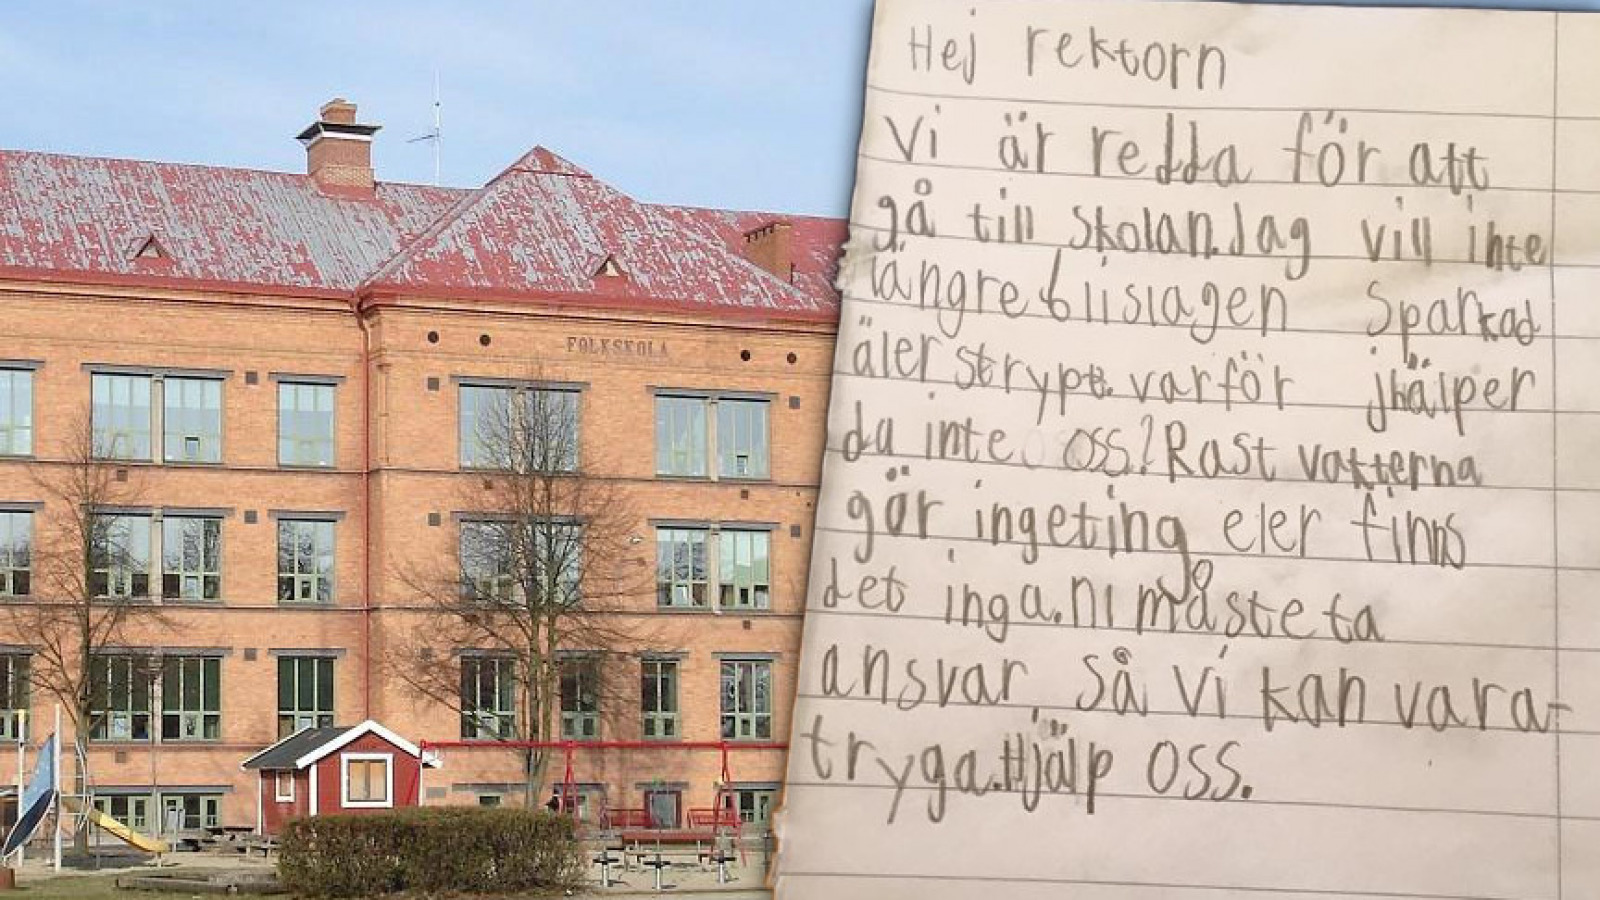 FOLKSKOLA
Hej rektorn
Vi är redda för att
gå till skolan. Jag vill inte
längre bli slagen Sparkad
äler strypt. varför jhälper
du inte oss? Rast vakterna
gör ingeting eler finns
det inga. ni måste ta
ansvar så vi kan vara
tryga. Hjälp oss.